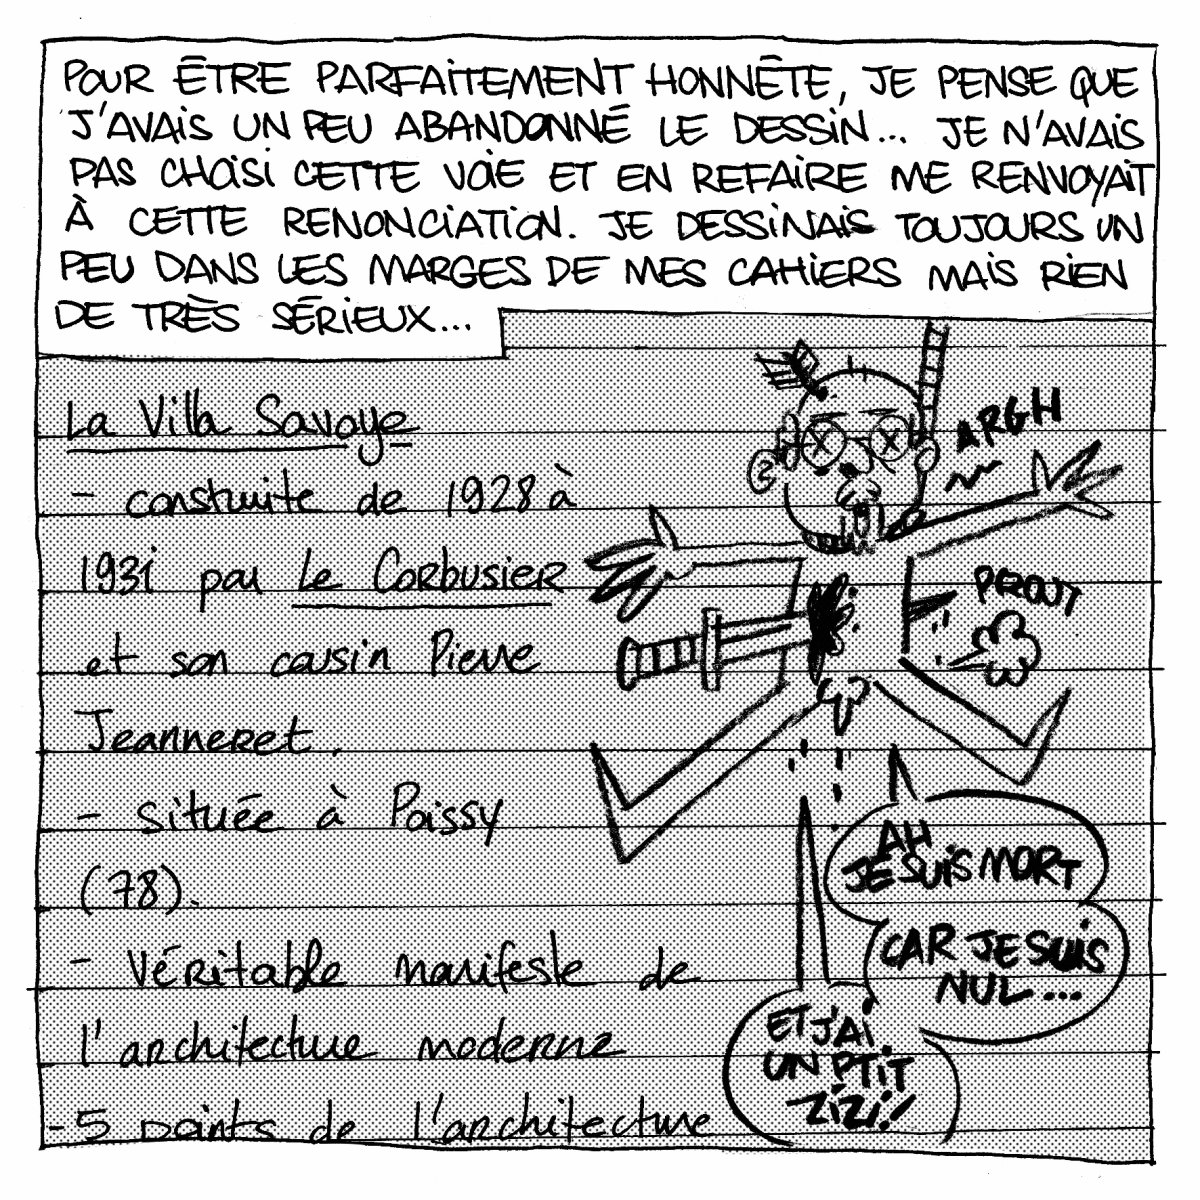 POUR ÊTRE PARFAITEMENT HONNÊTE, JE PENSE QUE
J'AVAIS UN PEU ABANDONNÉ LE DESSIN... JE N'AVAIS
PAS CHOISI CETTE VOIE ET EN REFAIRE ME RENVOYAIT
À CETTE RENONCIATION. JE DESSINAIS TOUJOURS UN
PEU DANS LES MARGES DE MES CAHIERS MAIS RIEN
DE TRÈS SÉRIEUX...
La Villa Savoye
- construite de 1928 à
1931 par Le Corbusier
et son cousin Pierre
Jeanneret.
- située à Poissy
(78).
- Véritable manifeste de
l'architecture moderne
- 5 points de l'architecture
ARGH
PROUT
AH
JE SUIS MORT
CAR JE SUIS
NUL...
ET J'AI
UN PTIT
ZIZI!